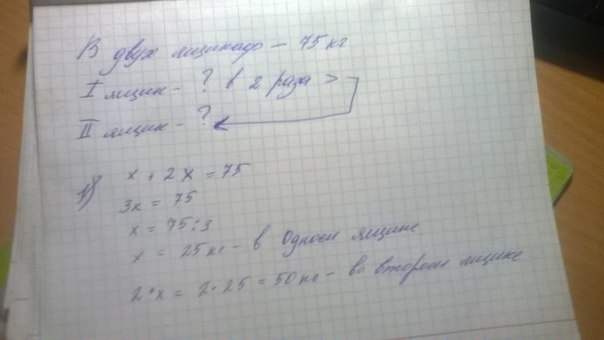 В двух ящиках — 75 кг
I ящик - ? в 2 раза >
II ящик - ?
1) x + 2x = 75
3x = 75
x = 75:3
x = 25 кг - в одном ящике.
2·x = 2·25 = 50 кг - во втором ящике